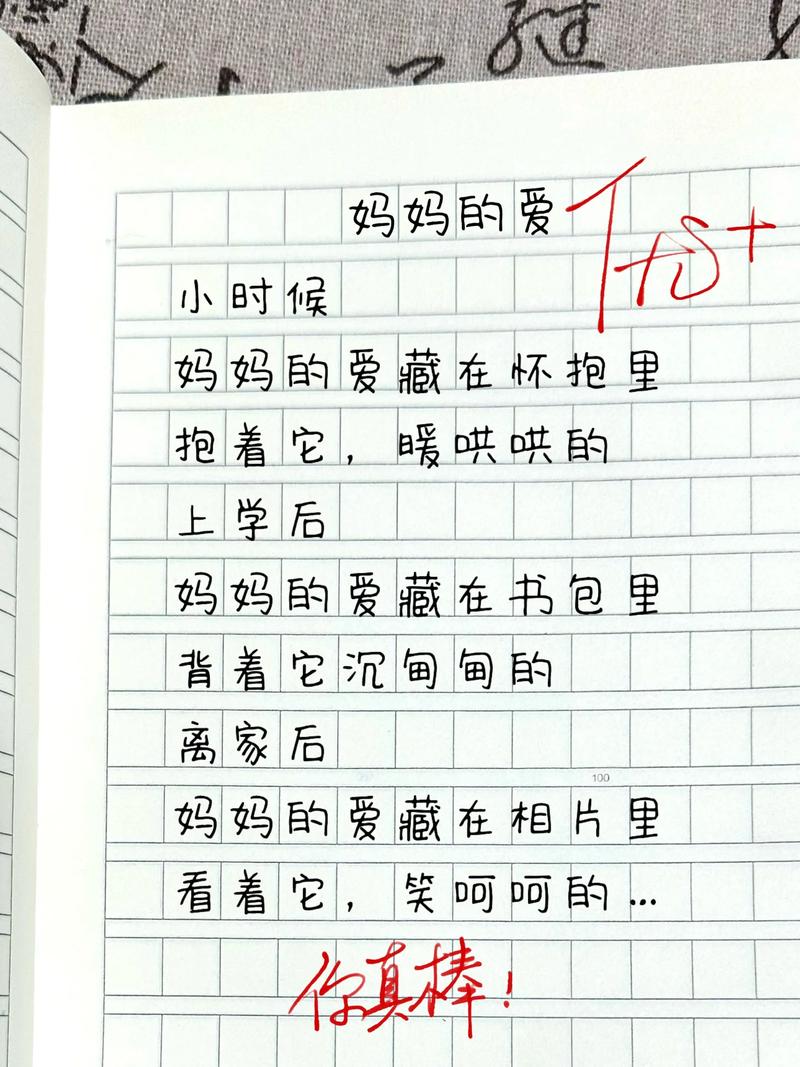 妈妈的爱
优+
小时候
妈妈的爱藏在怀抱里
抱着它，暖哄哄的
上学后
妈妈的爱藏在书包里
背着它沉甸甸的
离家后
100
妈妈的爱藏在相片里
看着它，笑呵呵的…
你真棒！